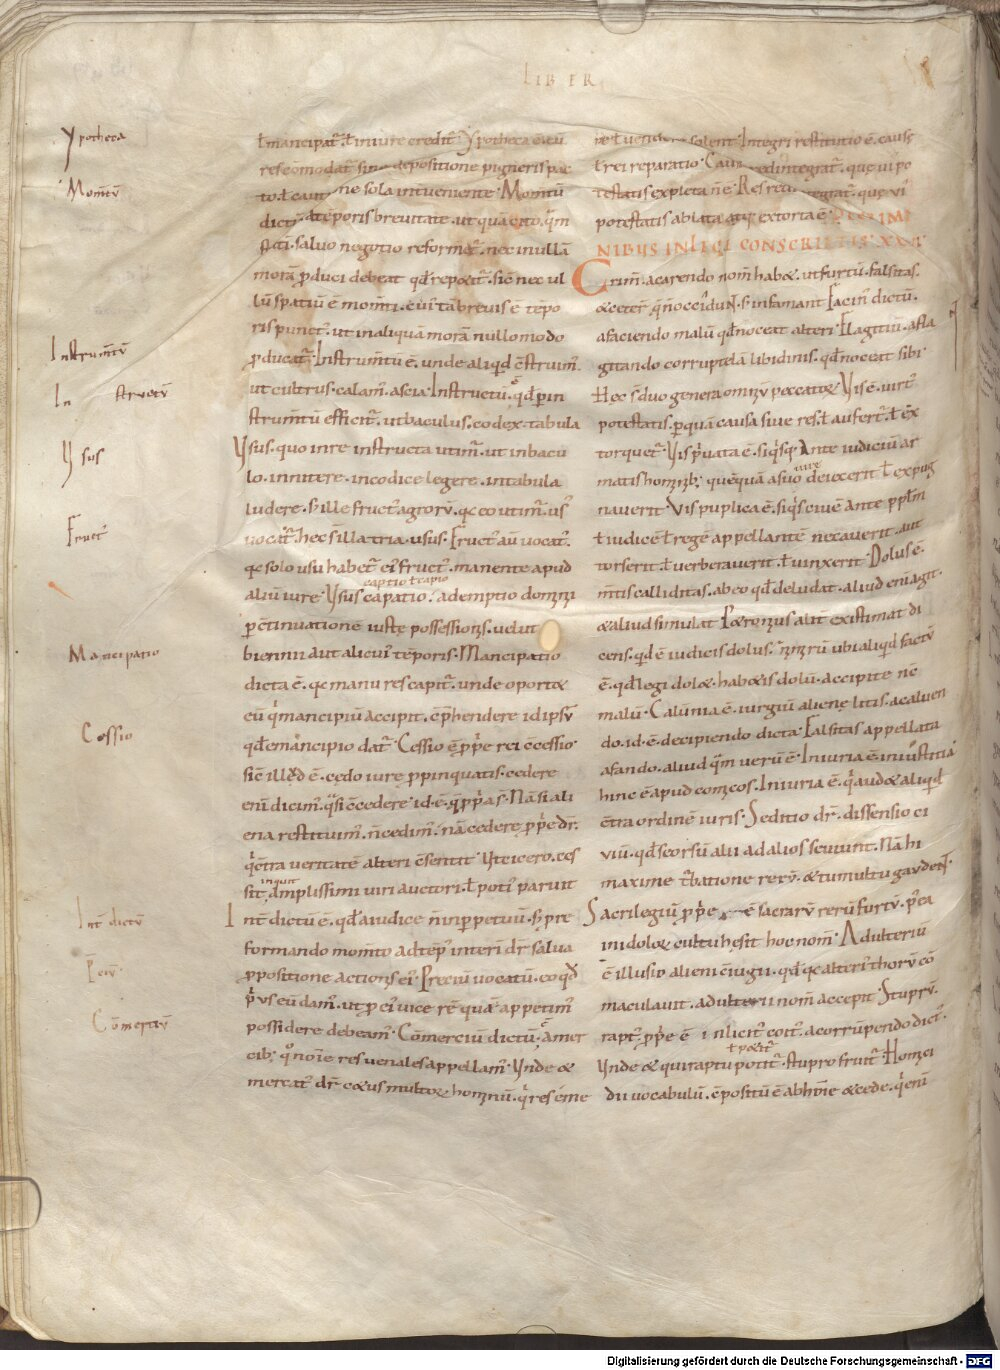 LIBER
Ypotheca
Momtū
Instrumtū
Instructū
Ysus
Fruct᾽
Mancipatio
Cessio
Int̄ dictū
P̄ciū
Cōmertiū
ł mancipat᷑. ł in iure credit᷑. Ypotheca ē. cū
res cōmodat᷑ sine depositione pigneris pac
to. ł cautione sola interveniente. Momtū
dictū a tēporis brevitate. ut quā cito. q̄m
st̄cti. salvo negotio reformet᷑. nec in ullā
morā p̱duci debeat qđ repetit᷑. sic̄ nec ul
lū spatiū ē momti. cui᾽ tā brevis ē tēpo
ris punct᾽. ut in aliquā morā nullo modo
p̱ducat᷑. Instrumtū ē. unde aliqđ cōstruim᾽.
ut cultrus. calam᾽. ascia. Instructū. qđ p̱ in
strumtū efficit᷑. ut baculus. codex. tabula
Ysus. quo in re instructa utim᷑. ut in bacu
lo. innitere. in codice legere. in tabula
ludere. s; ille fruct᾽ agrorū. qc eo utim᷑. us᾽
vocat᷑. hec s̄ illa tria. usus. Fruct᾽ aū vocat᷑.
qc solo usu habet᷑ ei᾽ fruct᾽. manente apud
captio ł capio
aliū iure. Ysus capatio. ademptio domini
p̱ cōtinuationē iustę possessionis. velut
biennii aut alicui᾽ tēporis. Mancipatio
dicta ē. qc manu res capit᷑. unde oportet
eū q̇ mancipiū accipit. cōp̄hendere id ipsū
qđ ei mancipio dat᷑. Cessio ē. p̱p̱e rei cōcessio
sic̄ illđ ē. cedo iure p̱pinquitatis. cedere
enī dicim᾽. q̇si cōcedere. id. ē. q̄ p̱p̱a s̄. Nā si ali
ena restituim᾽. n̄ cedim᾽. nā cedere p̱p̱e dr̄.
q̇ cōtra veritatē alteri cōsentit. ut cicero. ces
inquit
sit. amplissimi viri auctori. ł poti᾽ paruit
Int̄ dictū ē. qđ a iudice n̄ in p̱petuū. s; p̱ re
formando momto ad tēp᾽ interī dr̄. salva
p̱positione actionis ei᾽. Preciū vocatū. eo qđ
p̄us eū dam᾽. ut p̱ ei᾽ vice rē quā appetim᾽
possidere debeam᾽. Cōmerciū dictū. a mer
cib;. q᾽ noīe res venales appellam᾽. Unde et
mercat᾽ dr̄ coetus multorū hominū. q̇ res eme
re ł vendere solent. Integri restitutio ē. causę
ł rei reparatio. Causa redintegrat᷑. quę vi po
testatis expleta n̄ ē. Res redintegrat᷑. quę vi
potestatis ablata atq; extorta ē. DE CRIMI
NIBUS IN LEGE CONSCRIPTIS. XXVI
Crim̄. a carendo nom̄ habet. ut furtū. falsitas.
et ceter̄. q̄ n̄ occidunt. s; infamant. Facin᾽ dictū.
a faciendo malū qđ noceat alteri. Flagitiū. a fla
gitando corruptelā libidinis. qđ noceat sibi
Hec s̄ duo genera omniū peccatorū. Vis ē. virt᾽
potestatis. p̱ quā causa sive res. ł aufert᷑. ł ex
torquet᷑. Vis p̄vata ē. si q̇sq;. Ante iudiciū ar
iure
matis hominib;. quēquā a suo deiecerit ł expug
naverit. Vis puplica ē. si q̇s civē ante pp̄lm
ł iudicē ł regē appellantē necaverit. aut
torserit. ł verberaverit. ł vinxerit. Dolus ē.
m̄tis calliditas. ab eo qđ deludat. aliud enī agit.
et aliud simulat. Petronius alit̄ existimat di
cens. qđ ē iudicis dolus. nimirū ubi aliqđ factū
ē. qđ legi dolet. habetis dolū. accipite nc̄
malū. Calūnia ē. iurgiū alienę litis. a calven
do. id. ē. decipiendo dicta. Falsitas appellata
a fando. aliud q̄m verū ē. Iniuria ē. iniustitia
hinc ē apud comicos. Iniuria ē. q̇ audet aliqđ
cōtra ordinē iuris. Seditio dr̄. dissensio ci
viū. qđ seorsū alii ad alios seviunt. Nā hi
maxime t̄batione rerū. et tumultu gaudent.
Sacrilegiū p̱p̱e ē sacrarū rerū furtū. p᾽ea
in idolorū cultu hęsit hoc nom̄. Adulteriū
ē illusio alieni cōiugii. qđ qc alteri᾽ thorū cō
maculavit. adulterii nom̄ accepit. Stuprū.
rapt᾽. p̱p̱e ē inlicit᾽ coit᾽. a corrūpendo dict᾽.
ł potit᷑
Unde et qui raptu potit᷑. stupro fruit᷑. Homici
dii vocabulū. cōpositū ē ab hōīe et cede. q̇ enī